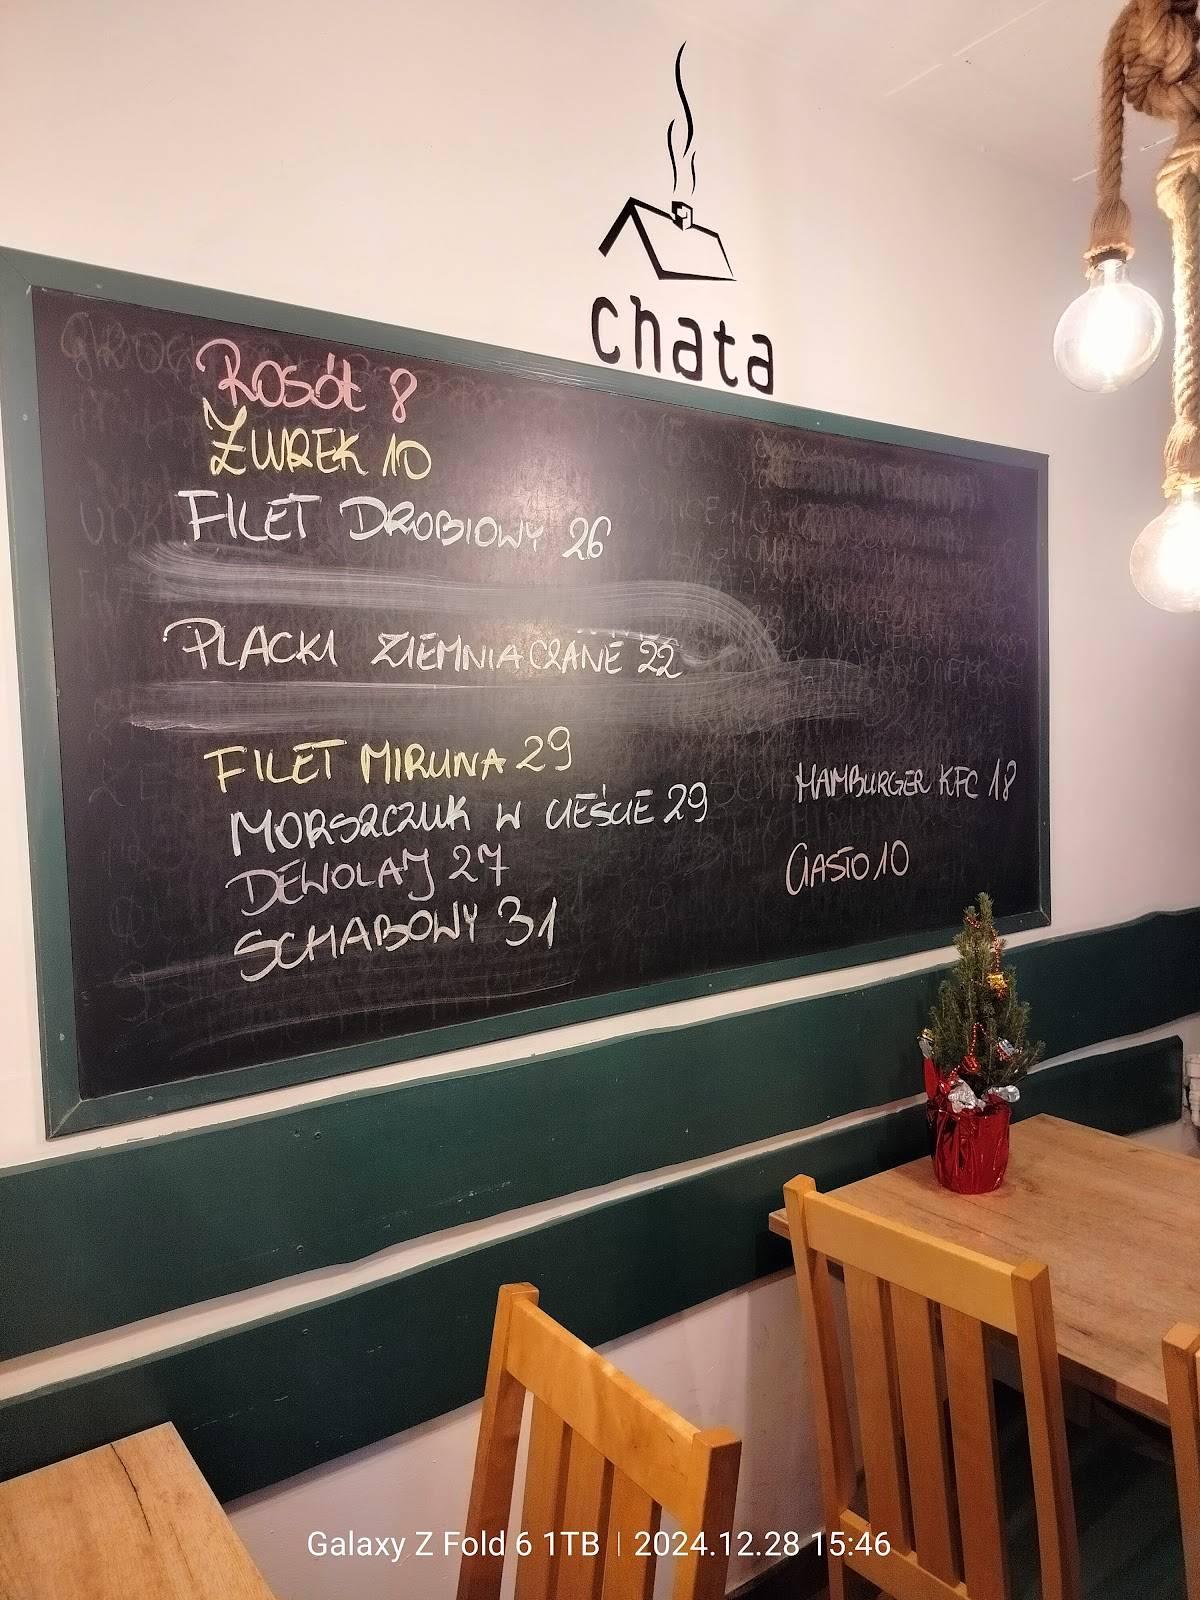 chata
Rosół 8
ŻUREK 10
FILET DROBIOWY 26
PLACKI ZIEMNIACZANE 22
FILET MIRUNA 29
MORSZCZUK W CIEŚCIE 29
DEWOLAJ 27
SCHABOWY 31
HAMBURGER KFC 18
CIASTO 10
Galaxy Z Fold 6 1TB | 2024.12.28 15:46